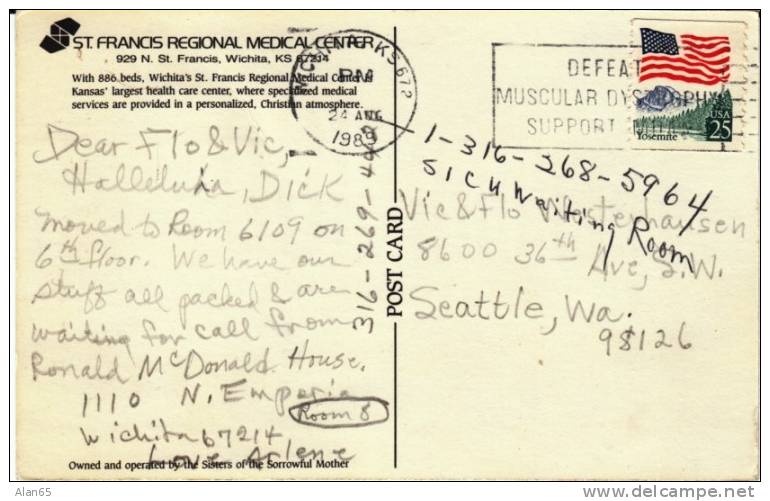 ST. FRANCIS REGIONAL MEDICAL CENTER
929 N. St. Francis, Wichita, KS 67214
With 886 beds, Wichita's St. Francis Regional Medical Center is
Kansas' largest health care center, where specialized medical
services are provided in a personalized, Christian atmosphere.
WICHITA KS 672
PM
24 AUG
1989
DEFEAT
MUSCULAR DYSTROPHY
SUPPORT
USA
25
Yosemite
Dear Flo & Vic,
Halleluia, Dick
moved to Room 6109 on
6th floor. We have our
stuff all packed & are
waiting for call from
Ronald McDonald House.
1110 N. Emporia
Room 8
Wichita 67214
Love Arlene
Owned and operated by the Sisters of the Sorrowful Mother
316-269-
POST CARD
1-316-268-5964
SICU Waiting Room
Vic & Flo Westerhausen
8600 36th Ave, S.W.
Seattle, Wa.
98126
Alan65
www.delcampe.net